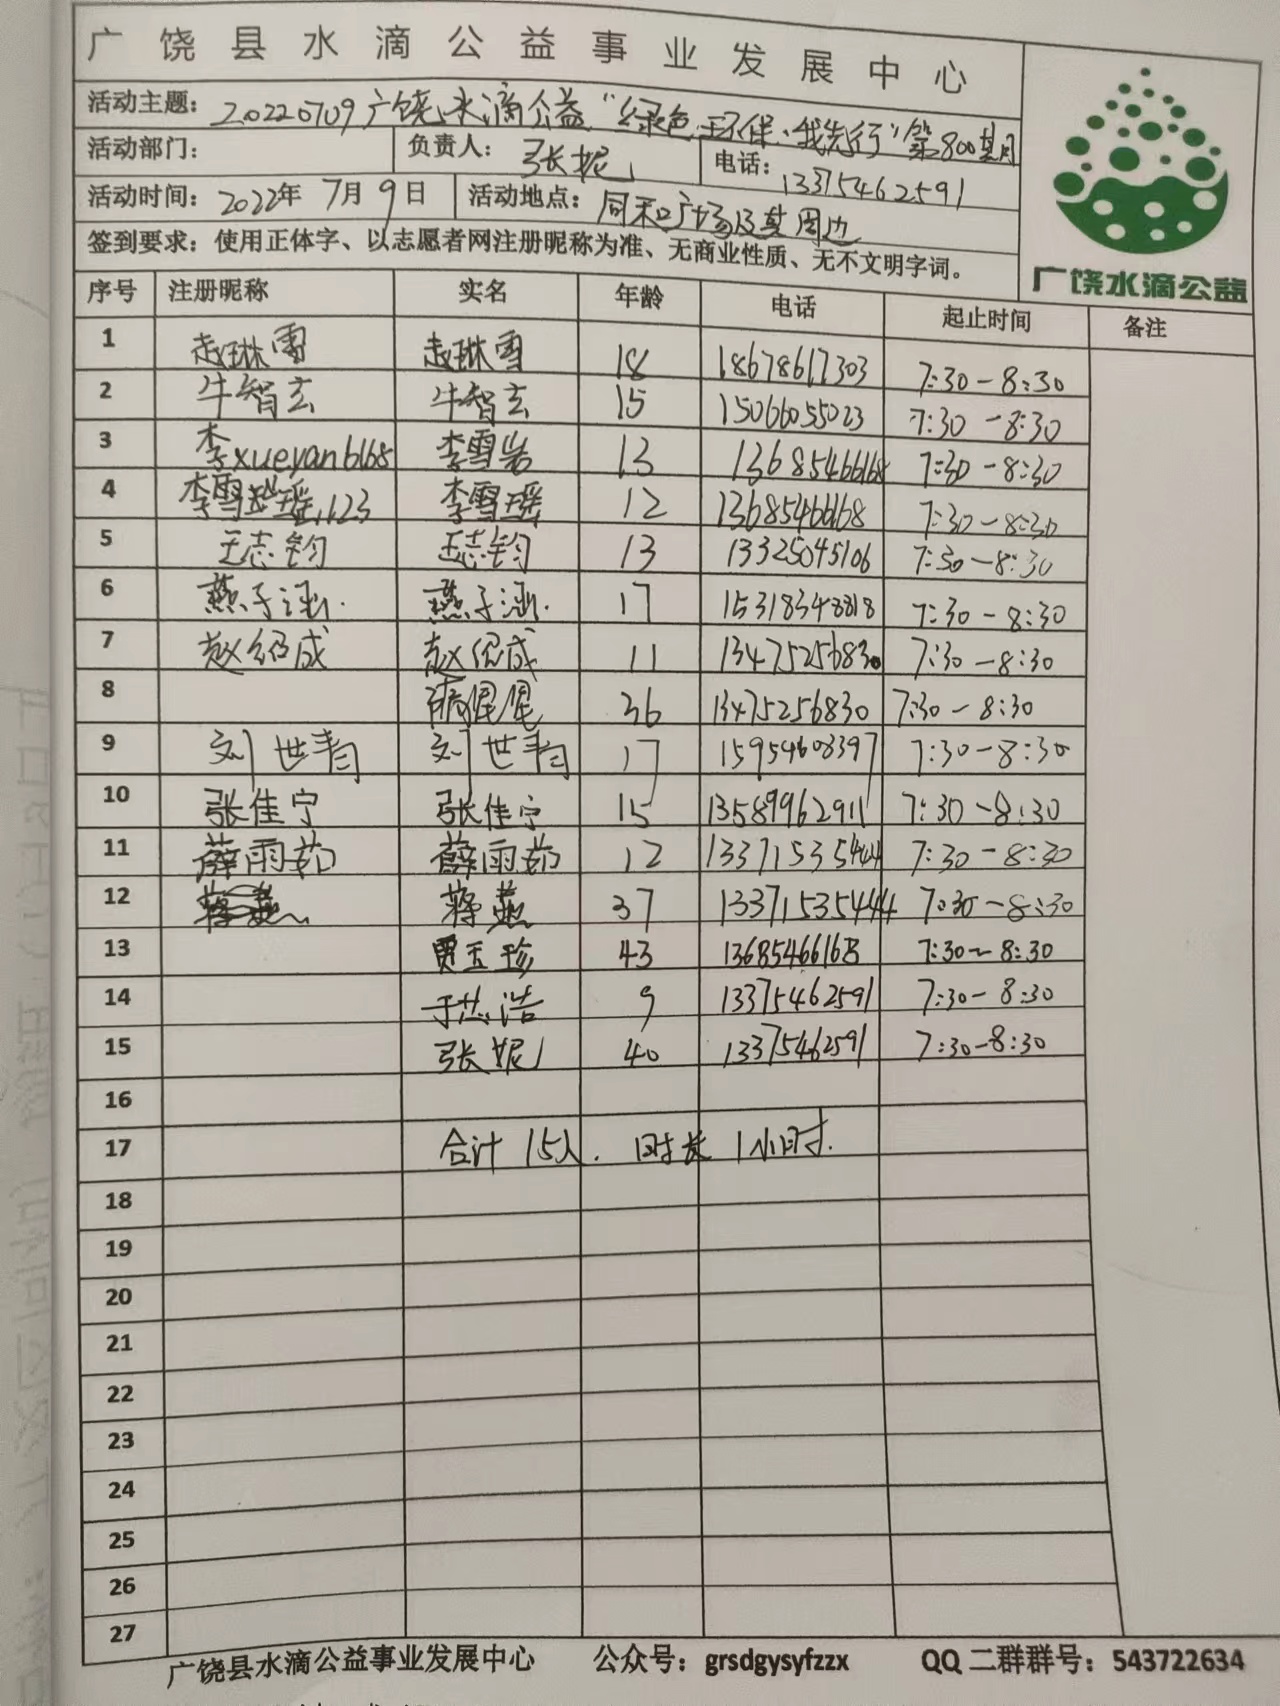 广饶县水滴公益事业发展中心
活动主题：20220709广饶水滴公益“绿色环保、我先行”第800期
活动部门： 负责人：张妮 电话：13375462591
活动时间：2022年7月9日 活动地点：同和广场及其周边
签到要求：使用正体字、以志愿者网注册昵称为准、无商业性质、无不文明字词。
广饶水滴公益
序号 注册昵称 实名 年龄 电话 起止时间 备注
1 赵琳雪 赵琳雪 18 18678617303 7:30-8:30
2 牛智玄 牛智玄 15 15066055023 7:30-8:30
3 李xueyan6168 李雪岩 13 13685466168 7:30-8:30
4 李雪瑶123 李雪瑶 12 13685466168 7:30-8:30
5 王志钧 王志钧 13 13325045106 7:30-8:30
6 燕子涵. 燕子涵. 17 15318348818 7:30-8:30
7 赵绍成 赵绍成 11 13475256830 7:30-8:30
8 36 13475256830 7:30-8:30
9 刘世青 刘世青 17 15954608397 7:30-8:30
10 张佳宁 张佳宁 15 13589962911 7:30-8:30
11 薛雨茹 薛雨茹 12 13371535444 7:30-8:30
12 蒋燕 37 13371535444 7:30-8:30
13 贾玉珍 43 13685466168 7:30-8:30
14 于浩 9 13375462591 7:30-8:30
15 张妮 40 13375462591 7:30-8:30
16
17 合计15人. 时长1小时.
18
19
20
21
22
23
24
25
26
27
广饶县水滴公益事业发展中心 公众号：grsdgysyfzzx QQ二群群号：543722634